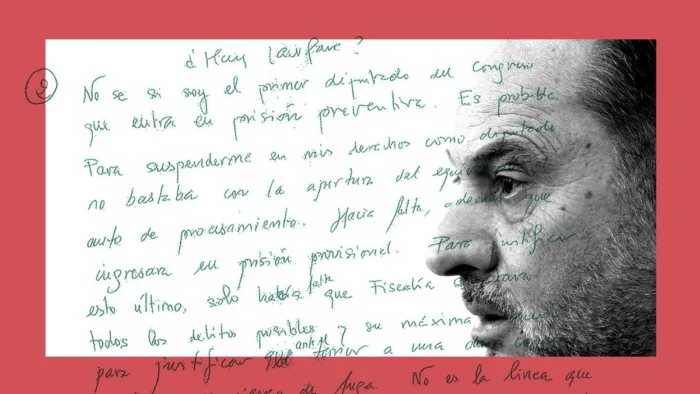 ¿Hay lawfare?
2
No se si soy el primer diputado del Congreso
que entra en prisión preventiva. Es probable.
Para suspenderme en mis derechos como diputado
no bastaba con la apertura del
auto de procesamiento. Hacía falta, además, que
ingresara en prisión provisional. Para justificar
esto último, solo falta que Fiscalía
todos los delitos posibles y su máxima
para justificar temor a una dura
de fuga. No es la línea que